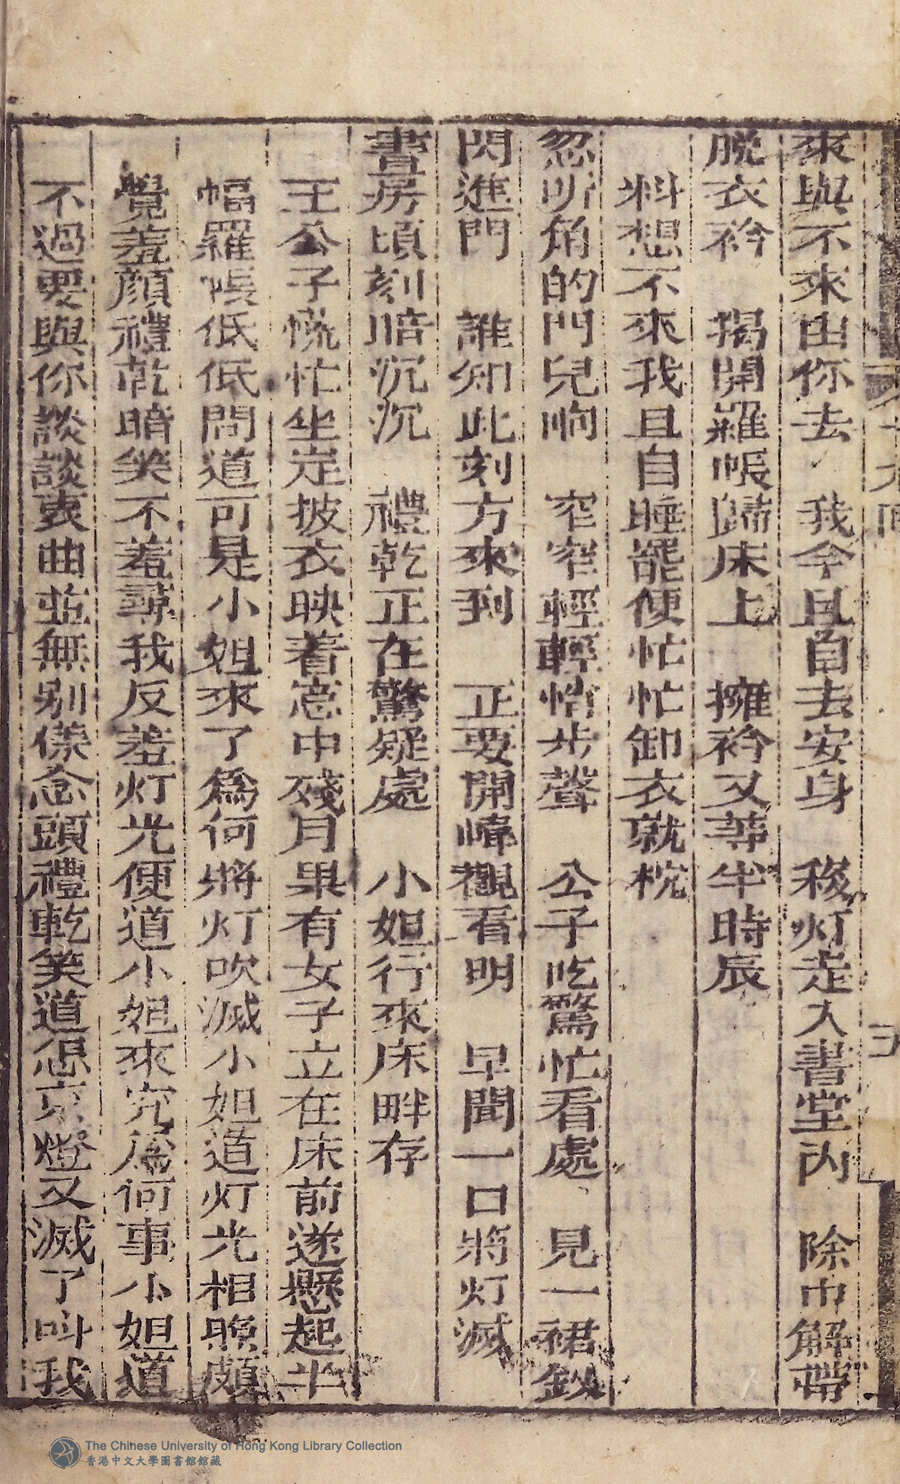 來與不來由你去 我今且自去安身 移灯走入書堂內 除巾解帶
脫衣衿 揭開羅帳歸床上 擁衿又等半時辰
料想不來我且自睡罷便忙忙卸衣就枕
忽听角的門兒响 窄窄輕輕悄步聲 公子吃驚忙看處 見一裙釵
閃進門 誰知此刻方來到 正要開幃觀看明 早聞一口將灯滅
書房頃刻暗沉沉 禮乾正在驚疑處 小姐行來床畔存
王公子慌忙坐定披衣映着窓中殘月果有女子立在床前遂懸起半
幅羅帳低低問道可是小姐來了爲何將灯吹滅小姐道灯光相照頗
覺羞顏禮乾暗笑不羞尋我反羞灯光便道小姐來究爲何事小姐道
不過要與你談談衷曲並無別樣念頭禮乾笑道恁般燈又滅了叫我
The Chinese University of Hong Kong Library Collection
香港中文大學圖書館館藏